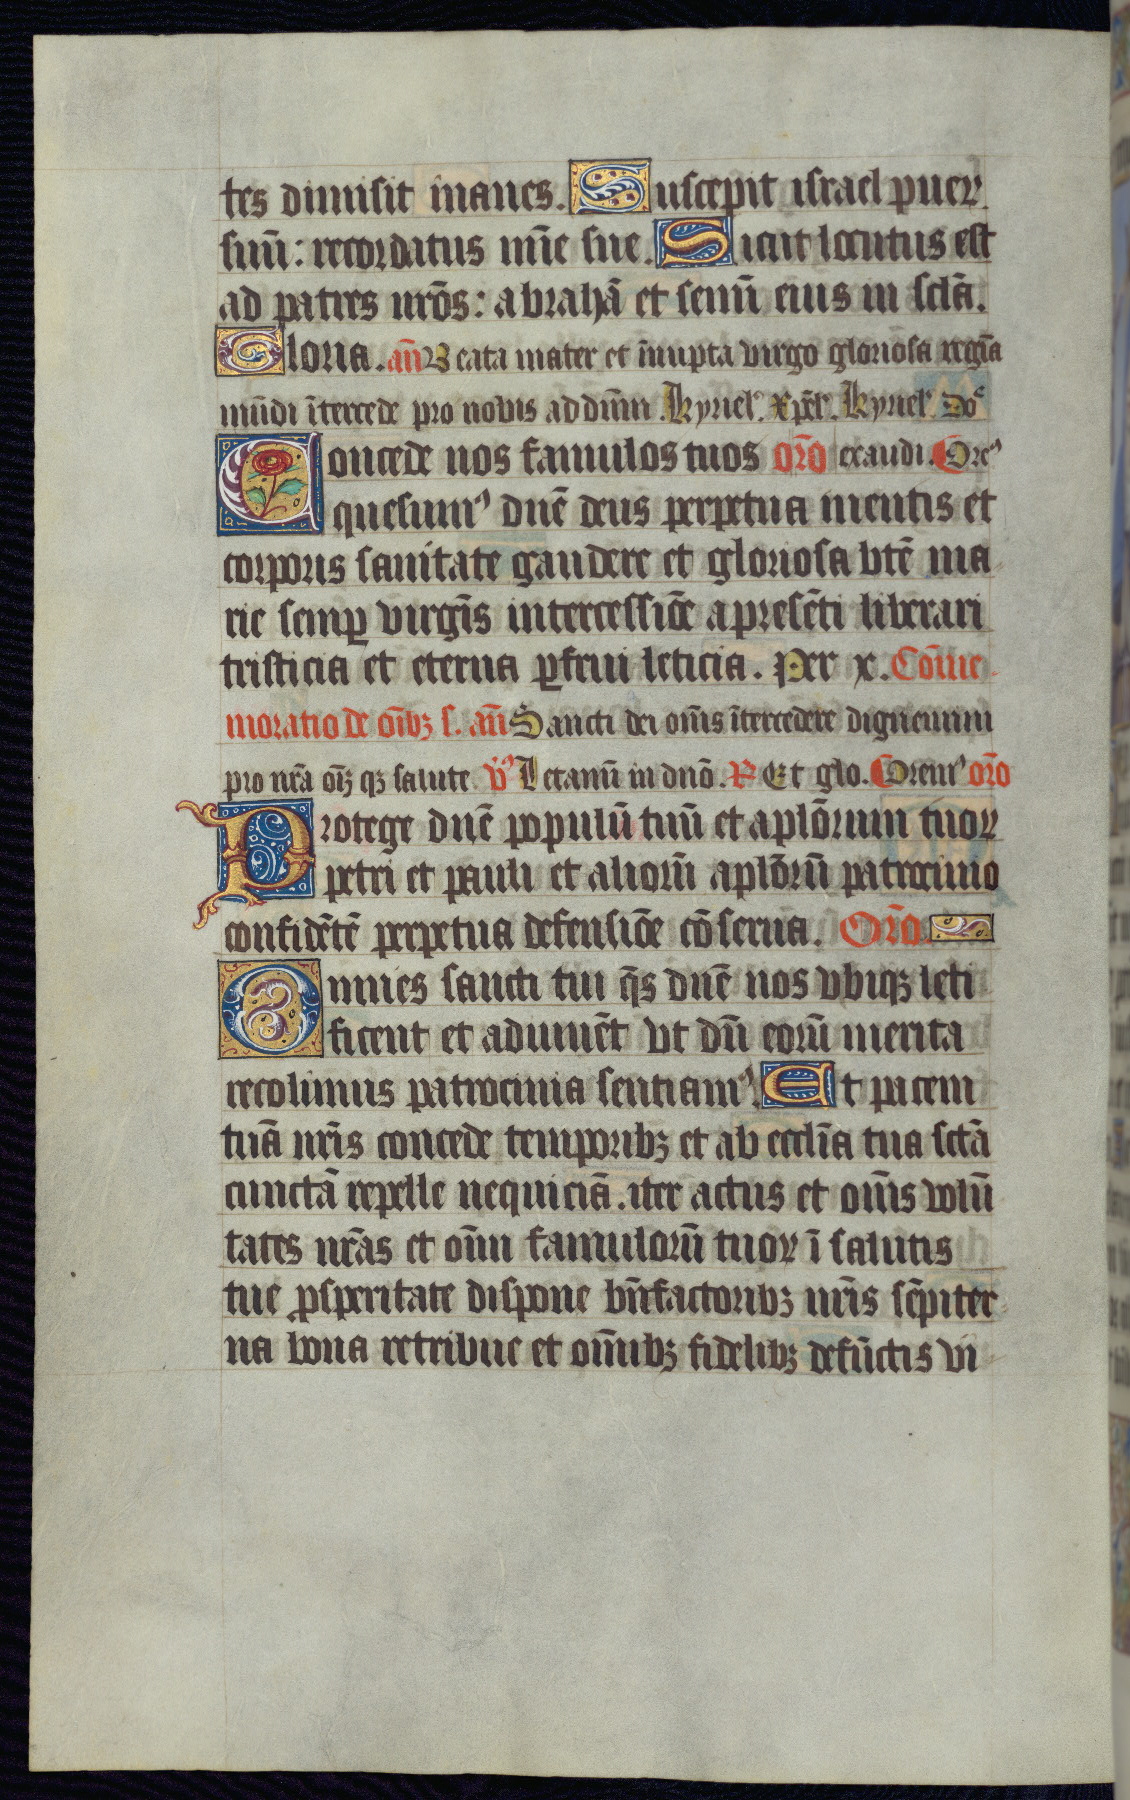 tes dimisit inanes. Suscepit israel puer
suū: recordatus mīe sue. Sicut locutus est
ad patres nrōs: abrahā et semī eius in sclā.
Gloria. an̄ Beata mater et īnupta virgo gloriosa regīa
mūdi ītercede pro nobis ad dūm. Kyriel'. Xpēl'. Kyriel'. Do͛
Concede nos famulos tuos orō exaudi. Orem9
quesum9 dnē deus perpetua mentis et
corporis sanitate gaudere et gloriosa btē ma
rie semꝑ virgīs intercessiōe a presēti liberari
tristicia et eterna ꝑfrui leticia. Per x. Cōme
moratio de oībꝫ s. an̄ Sancti dei om̄s ītercedere dignemini
pro nrā oīꝫ qꝫ salute. v̄9 Letamī in dnō. R Et glo. Orem9 orō
Protege dnē populū tuū et aplōrum tuoꝝ
petri et pauli et aliorū aplōrū patrocinio
confidētē perpetua defensiōe cōserua. Orō.
Omnes sancti tui q̄s dnē nos vbiqꝫ leti
ficent et adiuuēt vt dū eorū merita
recolimus patrocinia sentiam9. Et pacem
tuā nrīs concede temporibꝫ et ab ecclīa tua sctā
cunctā repelle nequiciā. iter actus et om̄s volū
tates nrās et oīm famulorū tuoꝝ ī salutis
tue ꝓsperitate dispone bn̄factoribꝫ nrīs sēpiter
na bona retribue et om̄ibꝫ fidelibꝫ defūctis vi